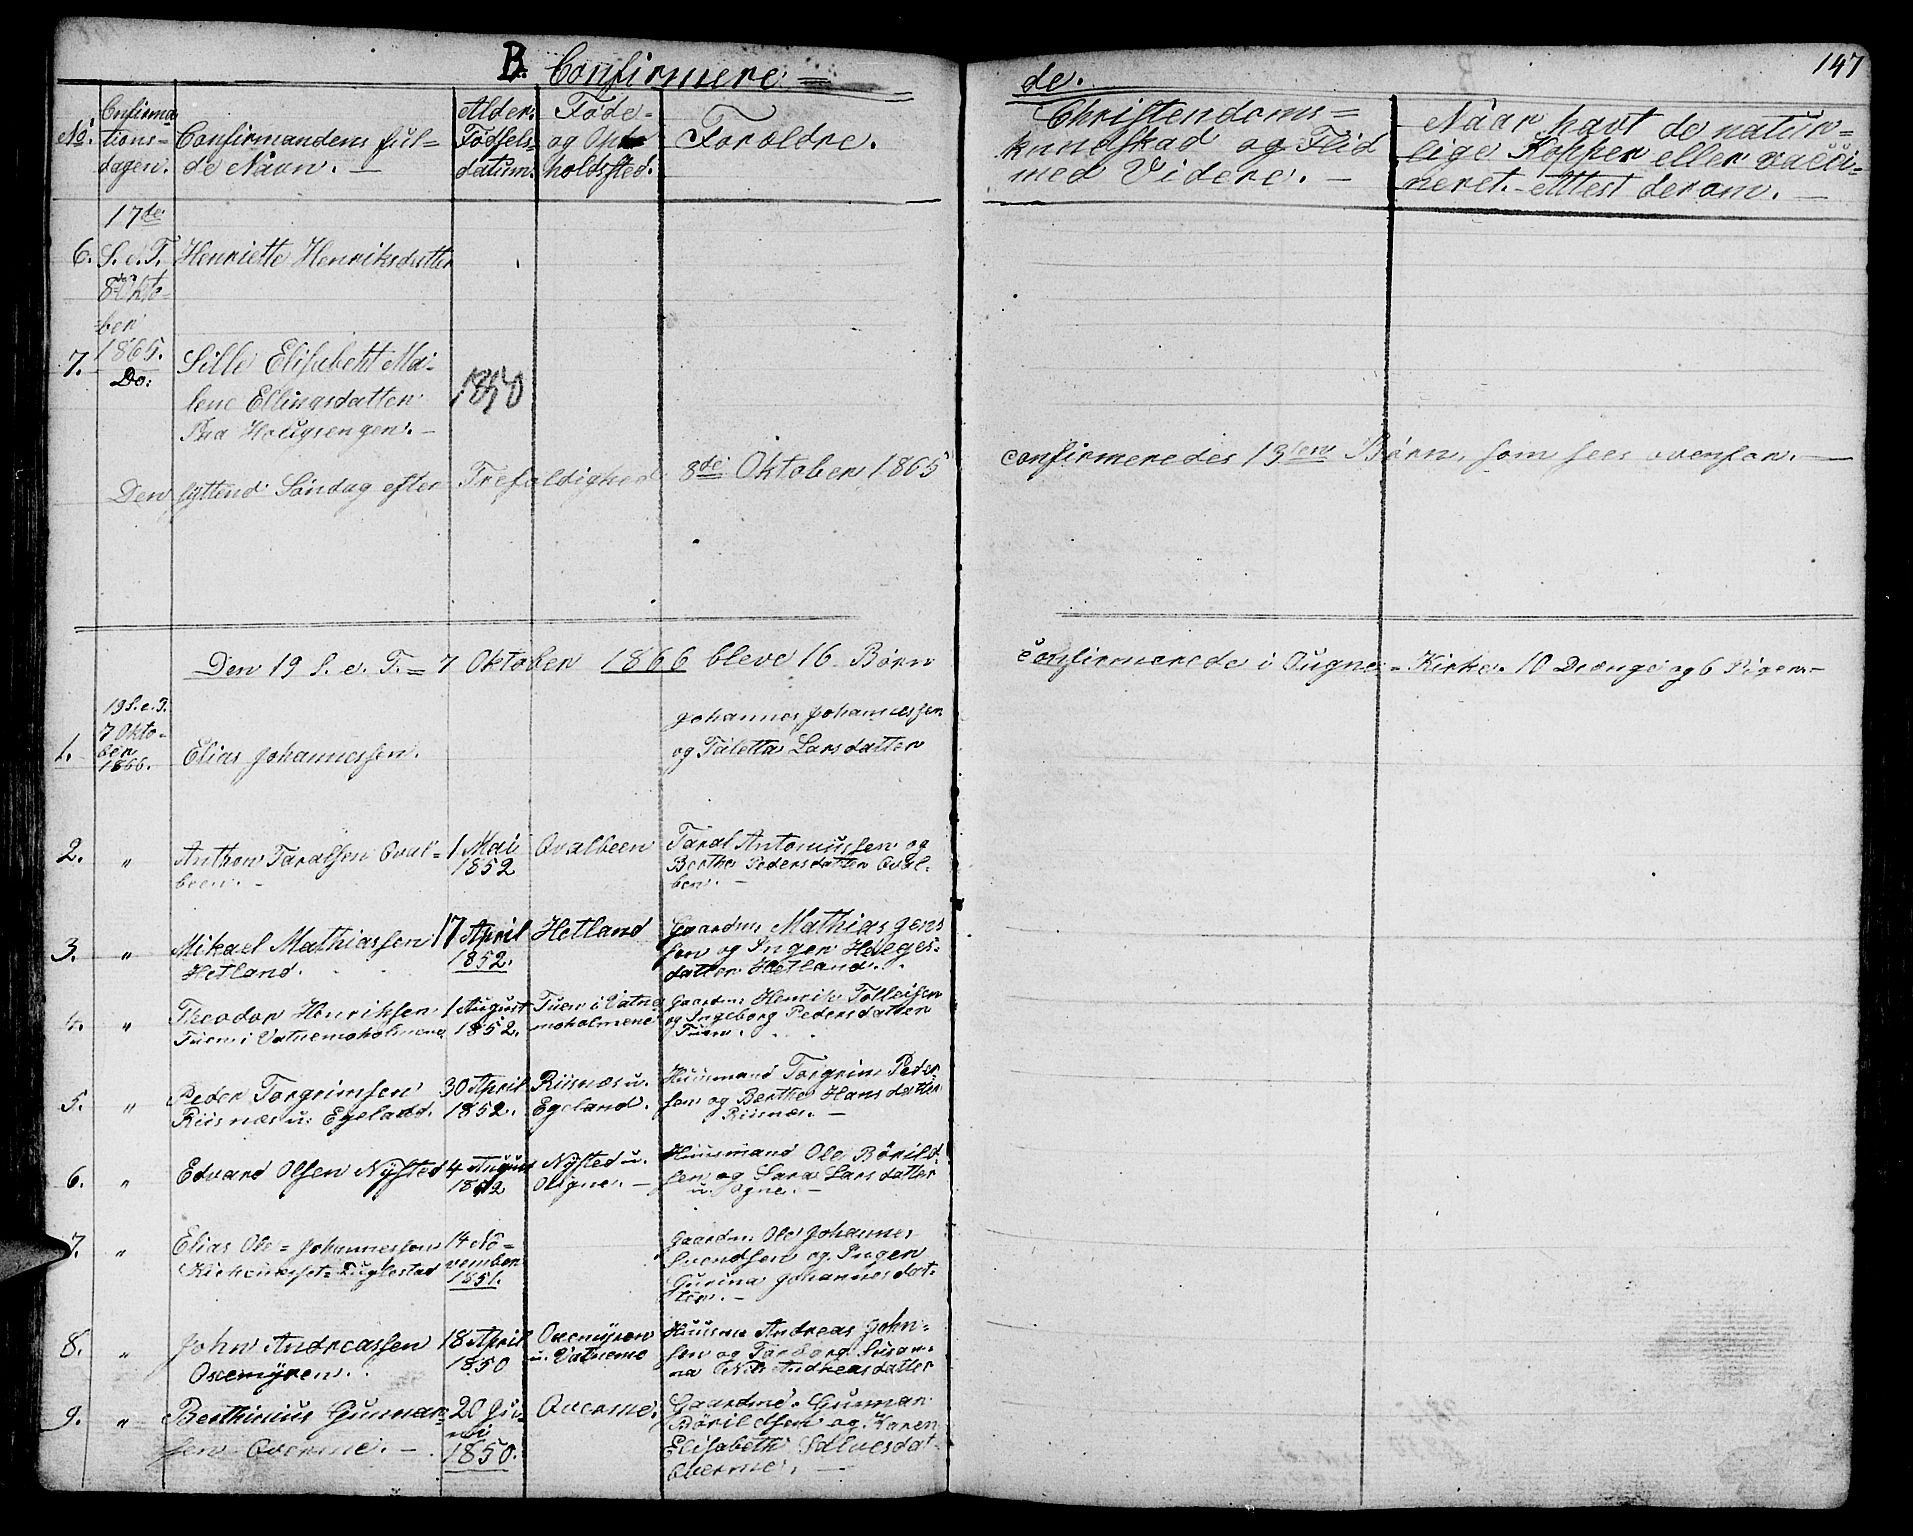 B. Confirmere=
de.
147
No.
Confirma
tions-
dagen.
Confirmandens ful-
de Navn. —
Alder.
Fødsels-
datum.
Føde-
og Op
holdssted.
Forældre.
Christendoms=
kundskab og Flid
med Videre. —
Naar havt de natur-
lige Kopper eller vacci-
neret. Attest derom. —
17de
6. S. e. T. Henriette Henriksdatter
8de Okto-
ber
1865.
7. Do: Sille Elisabeth Ma-
lene Ellingsdatter
fra Hougsengen. —
1850
Den syttend Søndag efter Trefoldighed 8de Oktober 1865
confirmeredes 13ten Børn, som sees ovenfor. —
Den 19 S. e. T. = 7 Oktober 1866 bleve 16 Børn
confirmerede i Augne = Kirke. 10 Drænge og 6 Piger. —
1. 19 S. e. T.
7 Okto-
ber
1866.
Elias Johannessen.
Johannes Johannessen
og Taletta Larsdatter
2. " Anthon Taralsen Qval-
been. —
1 Mai
1852
Qvalbeen
Taral Antoniussen og
Berthe Pedersdatter Qval-
ben. —
3. " Mikael Mathiassen
Hetland.
17 April
1852.
Hetland
Gaardm. Mathias Jens
sen og Inger Helges-
datter Hetland.
4. " Theodor Henriksen
Tuen i Vatnemoholmene
1 August
1852.
Tuen i Vatne
moholmene
Gaardm. Henrik Tolleifsen
og Ingeborg Pedersdatter
Tuen.
5. " Peder Torgrimsen
Riisnæs u. Egeland.
30 April
1852.
Riisnæs u.
Egeland.
Huusmand Torgrim Peder
sen og Berthe Hansdatter
Riisnæs. —
6. " Edvard Olsen Nysted
4 August
1852
Nysted u.
Ougne. —
Huusmand Ole Børild
sen og Sara Larsdatter
u. Ogne. —
7. " Elias Ole = Johannessen
Fuglestad
14 No-
vember
1851.
Gaardm. Ole Johannes
Svendsen og Inger
Gurina Johannesdat-
ter. —
8. " John Andreassen
Oxemyren.
18 April
1850
Oxemyren
u. Vatnemo
Huusm. Andreas John-
sen og Torborg Susan-
na Andreasdatter
9. " Berthinius Gunnar-
sen Qverme. —
20 Ju-
ni
1850.
Qverme.
Gaardm. Gunnar
Børildsen og Karen
Elisabeth Salvesdat-
Qverme. —